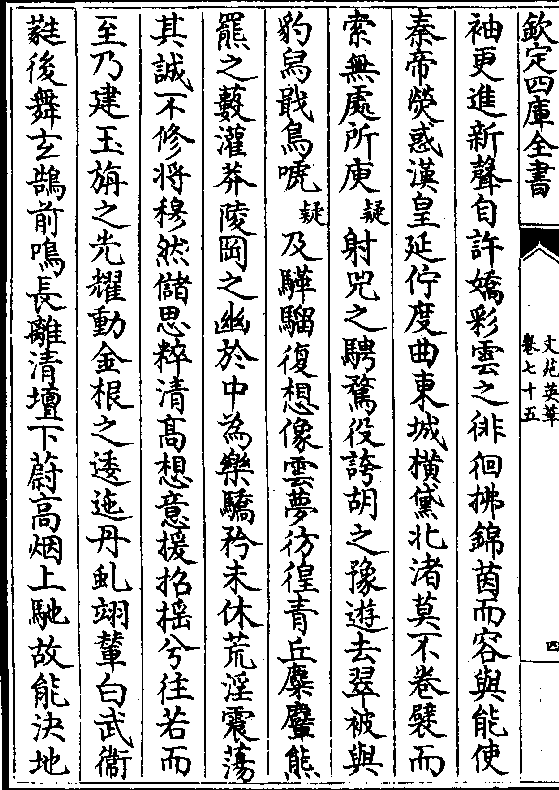 欽定四庫全書
文苑英華
卷七十五
四
袖更進新聲自許嬌彩雲之徘徊拂錦茵而容與能使
秦帝熒惑漢皇延佇度曲東城橫黛北渚莫不卷襞而
索無處所庾疑射兕之騁驁役誇胡之豫遊去翠被與
豹舄戢鳥唬疑及騨騮復想像雲夢彷徨青丘麋麢熊
羆之藪灌莽陵岡之幽於中為樂驕矜未休荒淫震蕩
其誠不修將穆然儲思粹清高想意援招榣兮往若而
至乃建玉旃之先耀動金根之逶迤丹虬翊輦白武衞
蕤後舞玄鵠前鳴長離清壇下蔚高烟上馳故能決地